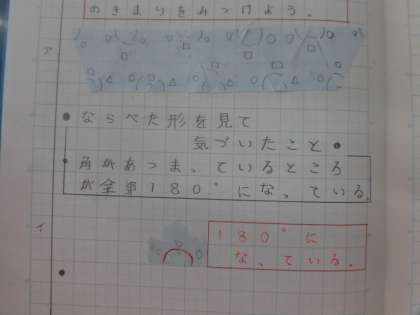 のきまりをみつけよう。
ア
●ならべた形を見て
気づいたこと●
角があつまっているところ
が全部180°になっている。
イ
180°に
なっている。